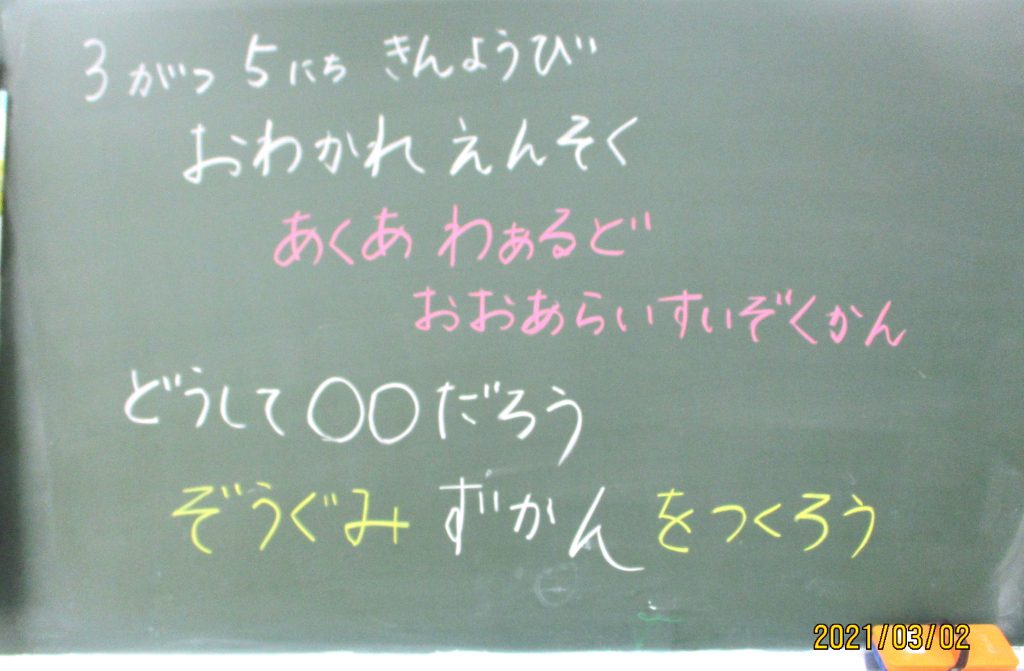 3がつ 5にち きんようび
おわかれ えんそく
あくあ わぁるど
おおあらいすいぞくかん
どうして〇〇だろう
ぞうぐみ ずかん をつくろう
2021/03/02